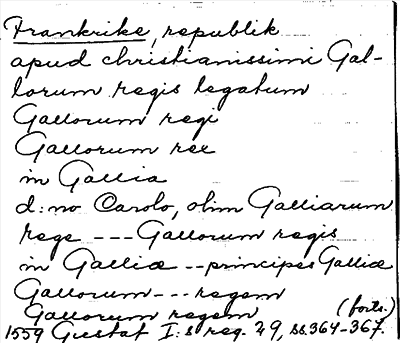 Frankrike, republik
apud christianissimi Gal-
lorum regis legatum
Gallorum regi
Gallorum rex
in Gallia
d:no Carolo, olim Galliarum
rege --- Gallorum regis
in Galliæ -- principes Galliæ
Gallorum --- regem
Gallorum regem (forts.)
1559 Gustaf I:s reg. 29, ss. 364-367.